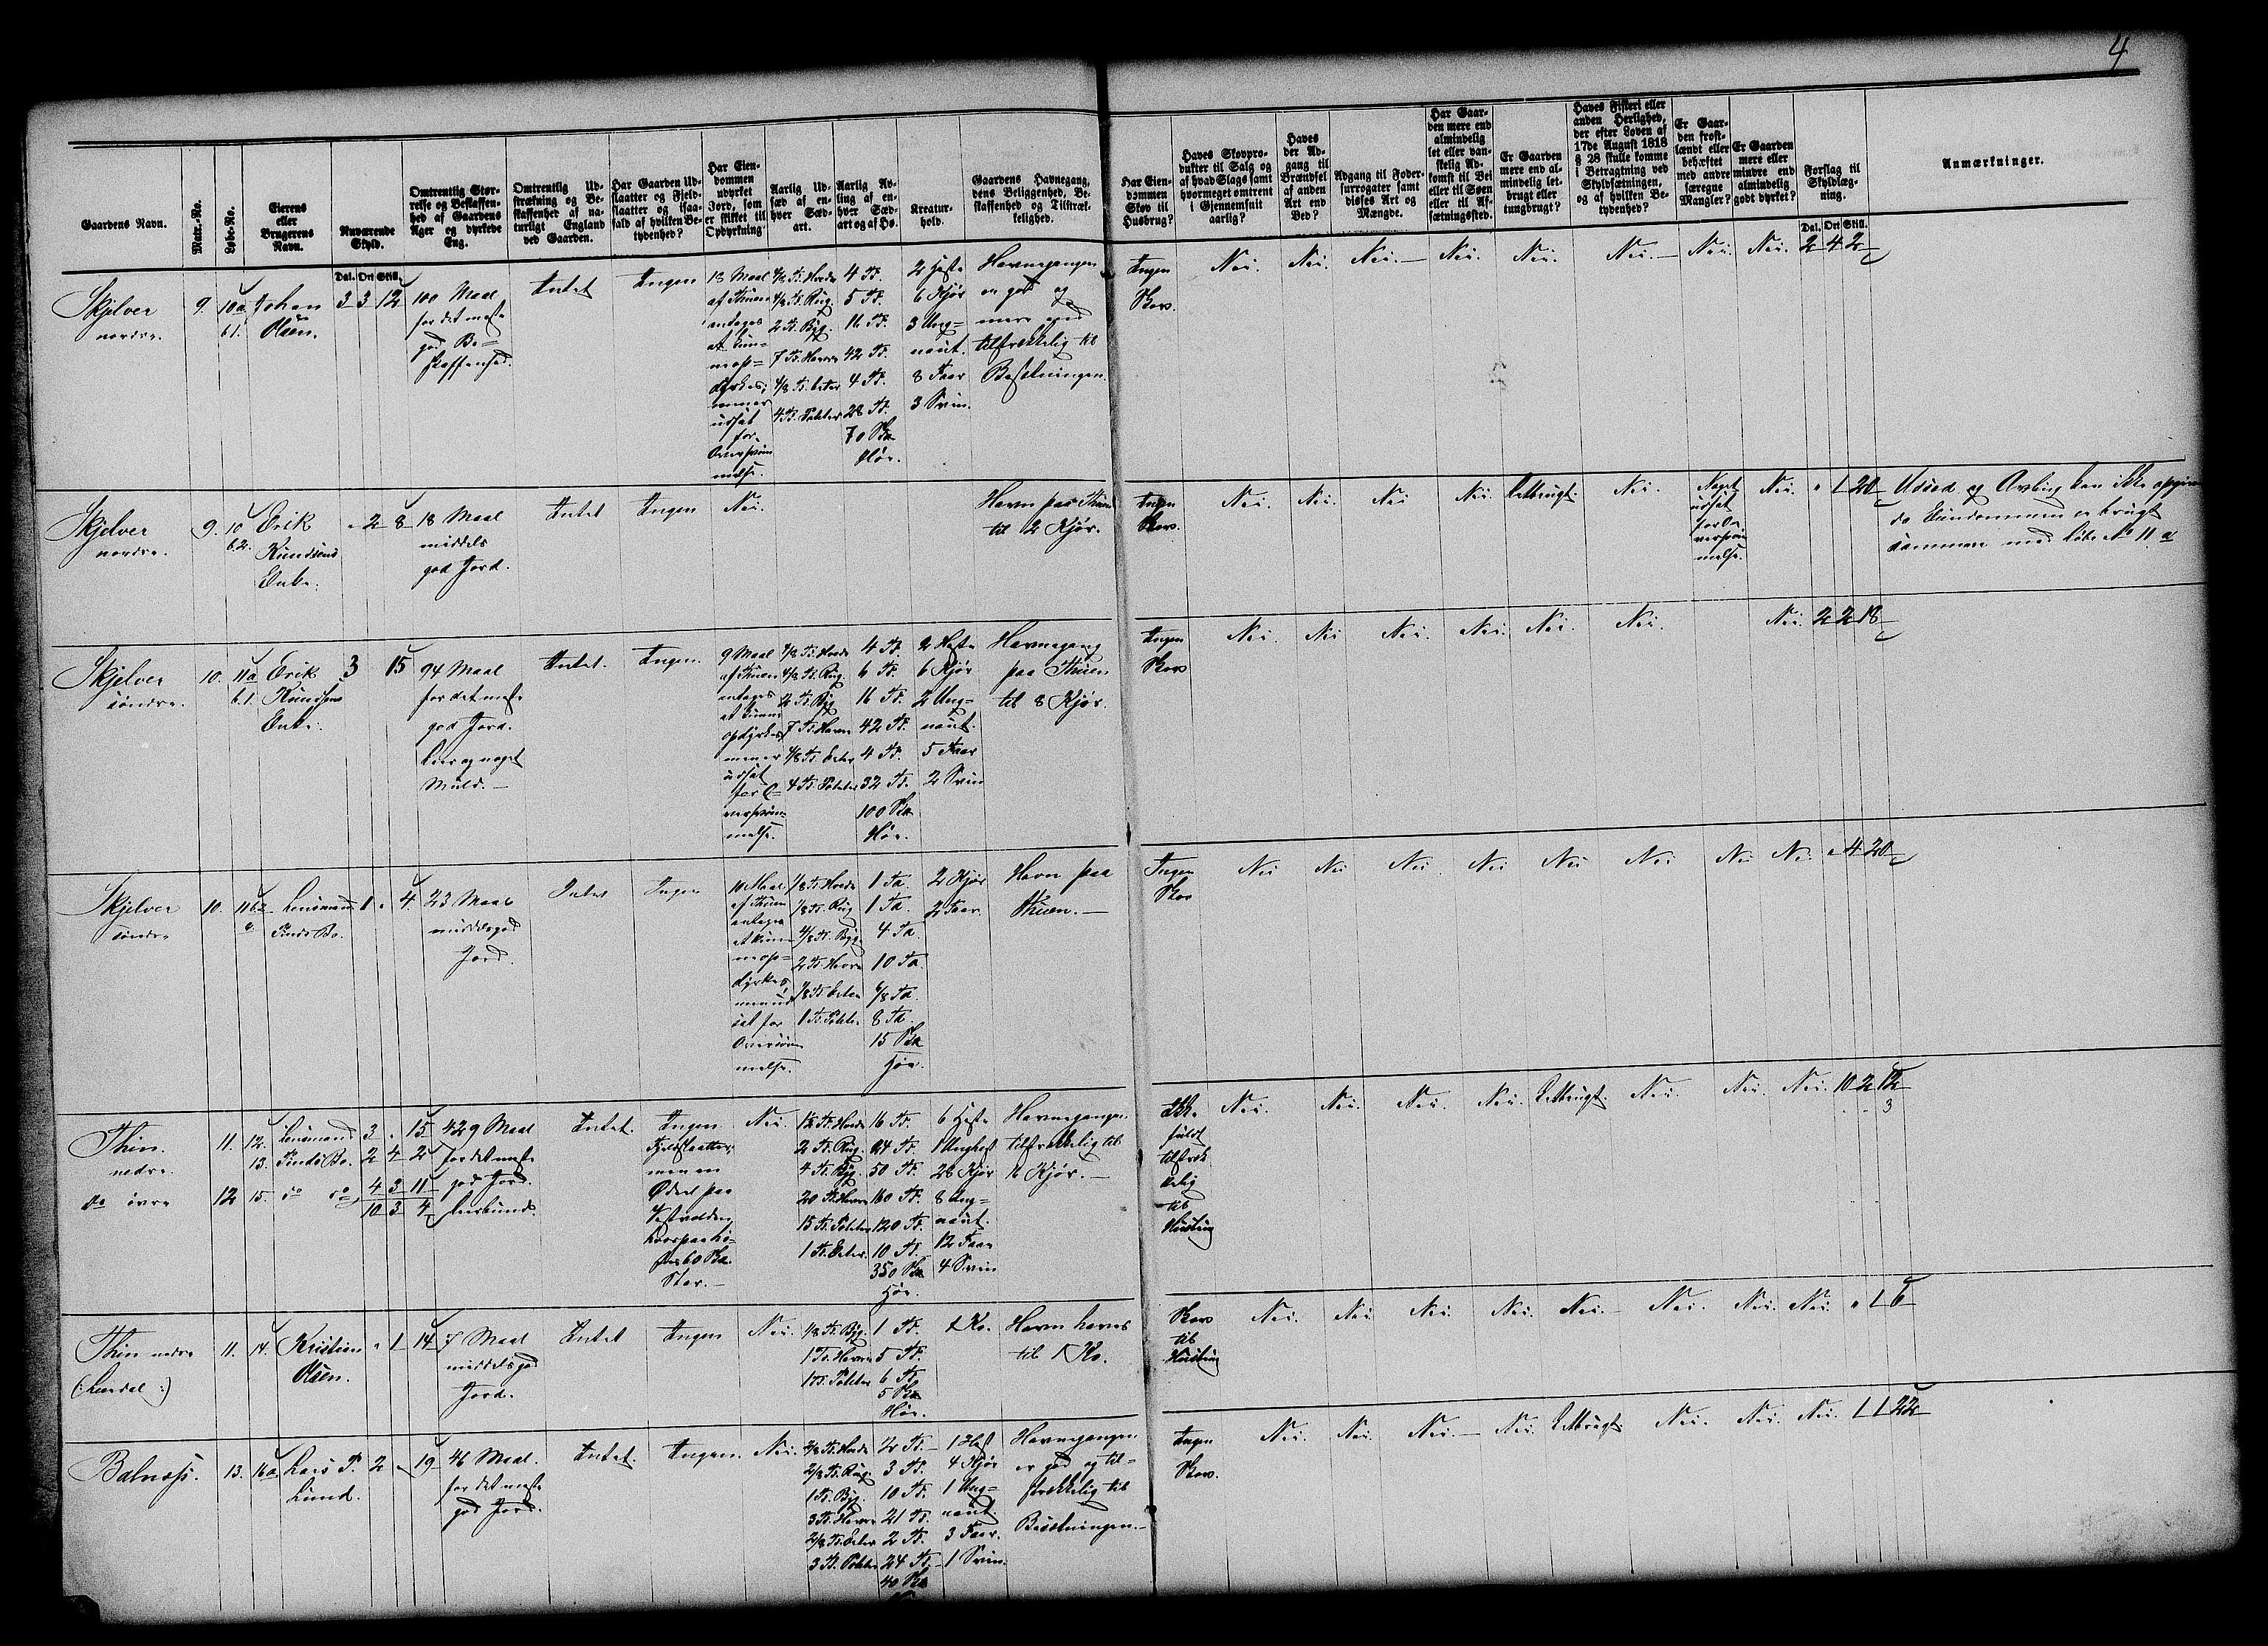 4
Gaardens Navn.
Matr.-No.
Løbe-No.
Eierens eller Brugerens Navn.
Nuværende Skyld.
Dal. Ort Skill.
Omtrentlig Størrelse og Beskaffenhed af Gaardens Ager og dyrkede Eng.
Omtrentlig Udstrækning og Beskaffenhed af naturligt England ved Gaarden.
Har Gaarden Udslaatter og Fjeldslaatter og isaafald af hvilken Betydenhed?
Har Eiendommen udyrket Jord, som er skikket til Opdyrkning?
Aarlig Udsæd af enhver Sædart.
Aarlig Avling af enhver Sædart og af Hø.
Kreaturhold.
Gaardens Havnegang, dens Beliggenhed, Beskaffenhed og Tilstrækkelighed.
Har Eiendommen Skov til Husbrug?
Haves Skovprodukter til Salg og af hvad Slags samt hvormeget omtrent i Gjennemsnit aarlig?
Haves der Adgang til Brændsel af anden Art end Ved?
Adgang til Foder-surrogater samt disses Art og Mængde.
Har Gaarden mere end almindelig let eller vanskelig Adkomst til Vei eller til Søen eller til Afsætningssted.
Er Gaarden mere end almindelig letbrugt eller tungbrugt?
Haves Fiskeri eller anden Herlighed, der efter Loven af 17de August 1818 § 28 skulle komme i Betragtning ved Skyldsætningen, og af hvilken Betydenhed?
Er Gaarden frostlændt eller behæftet med andre særegne Mangler?
Er Gaarden mere eller mindre end almindelig godt dyrket?
Forslag til Skyldlægning.
Dal. Ort Skill.
Anmærkninger.
Skjelver nordre. 9. 10a b1. Johan Olsen. 3 3 12
100 Maal for det meste god Beskaffenhed.
Intet
Ingen
18 Maal af Thuen antages at kunne opdyrkes, men er udsat for Oversvømmelse.
4/8 Td. Hvede 4 Td.
4/8 Td. Rug. 5 Td.
2 Td. Byg. 16 Td.
7 Td. Havre 42 Td.
4/8 Td. Erter 4 Td.
4 Td. Poteter 28 Td.
70 Skp Høe.
2 Heste
6 Kjør
3 Ungnaut.
8 Faar
3 Svin.
Havnegangen er god og mere end tilstrekkelig til Besetningen.
Ingen Skov.
Nei. Nei. Nei. Nei. Nei. Nei. Nei. Nei. 2 4 2
Skjelver nordre. 9. 10 b.2. Erik Knudsens Enke. " 2 8
18 Maal middels god Jord.
Intet Ingen Nei.
Havn paa Thuen til 2 Kjør.
Ingen Skov.
Nei. Nei. Nei Nei. Letbrugt. Nei.
Noget udsat for Oversvømmelse.
Nei. " 1 20
Udsæd og Avling kan ikke opgives da Eiendommen er brugt sammen med Løbe No 11 a
Skjelver søndre. 10. 11a b.1. Erik Knudsens Enke. 3 15
94 Maal for det meste god Jord. Leer og noget Muld.
Intet. Ingen.
9 Maal af Thuen antages at kunne opdyrkes men er udsat for Oversvømmelse.
4/8 Td. Hvede 4 Td.
4/8 Td. Rug. 6 Td.
2 Td. Byg 16 Td.
7 Td. Havre 42 Td.
4/8 Td. Erter 4 Td.
4 Td. Poteter 32 Td.
100 Skp Høe.
2 Heste
6 Kjør
2 Ungnaut.
5 Faar
2 Svin
Havnegang paa Thuen til 8 Kjør.
Ingen Skov
Nei. Nei Nei. Nei. Nei. Nei. Nei. 2 2 18
Skjelver søndre 10. 11b2 Lensmand Tinds Bo. 1 " 4.
23 Maal middelsgod Jord.
Intet Ingen
10 Maal af Thuen antages at kunne opdyrkes, men udsat for Oversvømmelse.
1/8 Td. Hvede 1 Td.
1/8 Td. Rug 1 Td.
4/8 Td. Byg 4 Td.
2 Td. Havre 10 Td.
1/8 Td. Erter 6/8 Td.
1 Td. Poteter 8 Td.
15 Skp Høe.
2 Kjør
2 Faar.
Havn paa Thuen.
Ingen Skov
Nei Nei Nei Nei Nei Nei Nei Nei " 4 20
Thin nedre. 11. 12. Lensmand 3 " 15
13. Tinds Bo. 2 4 2
do øvre 12 15. do do 4 3 11
10 3 4
429 Maal for det meste god Jord. Leerbund.
Intet.
Ingen Fjeldslaatter, men en Ødeel paa hvorpaa 60 Skp. Star.
Nei.
2 Td. Rug. 24 Td.
4 Td. Byg. 50 Td.
20 Td. Havre 160 Td.
15 Td. Poteter 120 Td.
1 Td. Erter. 10 Td.
350 Skp Høe.
6 Heste
1 Unghest
28 Kjør
8 Ungnaut.
12 Faar
4 Svin
Havnegangen tilstrekkelig til Kjør.
Ikke fuldt tilstrekkelig til Husbrug
Nei. Nei. Nei. Nei. Letbrugt. Nei. Nei. Nei. 10 2 12
3
Thin nedre (: Lundal :) 11. 14. Kristian Olsen. " 1 14
7 Maal middelsgod Jord.
Intet Ingen Nei.
1/8 Td. Byg. 1 Td.
1 Td. Havre 5 Td.
1 Td. Poteter 6 Td.
5 Skp Høe.
1 Ko.
Havn haves til 1 Ko.
Skov til Husbrug
Nei. Nei. Nei. Nei. Nei. Nei. Nei. Nei. " 1 6
Balnæss. 13. 16a Lars P. Lund. 2 " 19
46 Maal. for det meste god Jord.
Intet. Ingen. Nei.
2/8 Td. Hvede 2 Td.
2/8 Td. Rug. 3 Td.
1 Td. Byg. 10 Td.
3 Td. Havre 21 Td.
2/8 Td. Erter 2 Td.
3 Td. Poteter 24 Td.
40 Skp
1 Hest
4 Kjør
1 Ungnaut.
3 Faar.
1 Svin.
Havnegangen er god og tilstrekkelig til Besetningen.
Ingen Skov.
Nei. Nei. Nei. Nei. Letbrugt. Nei. Nei. Nei. 1 1 22